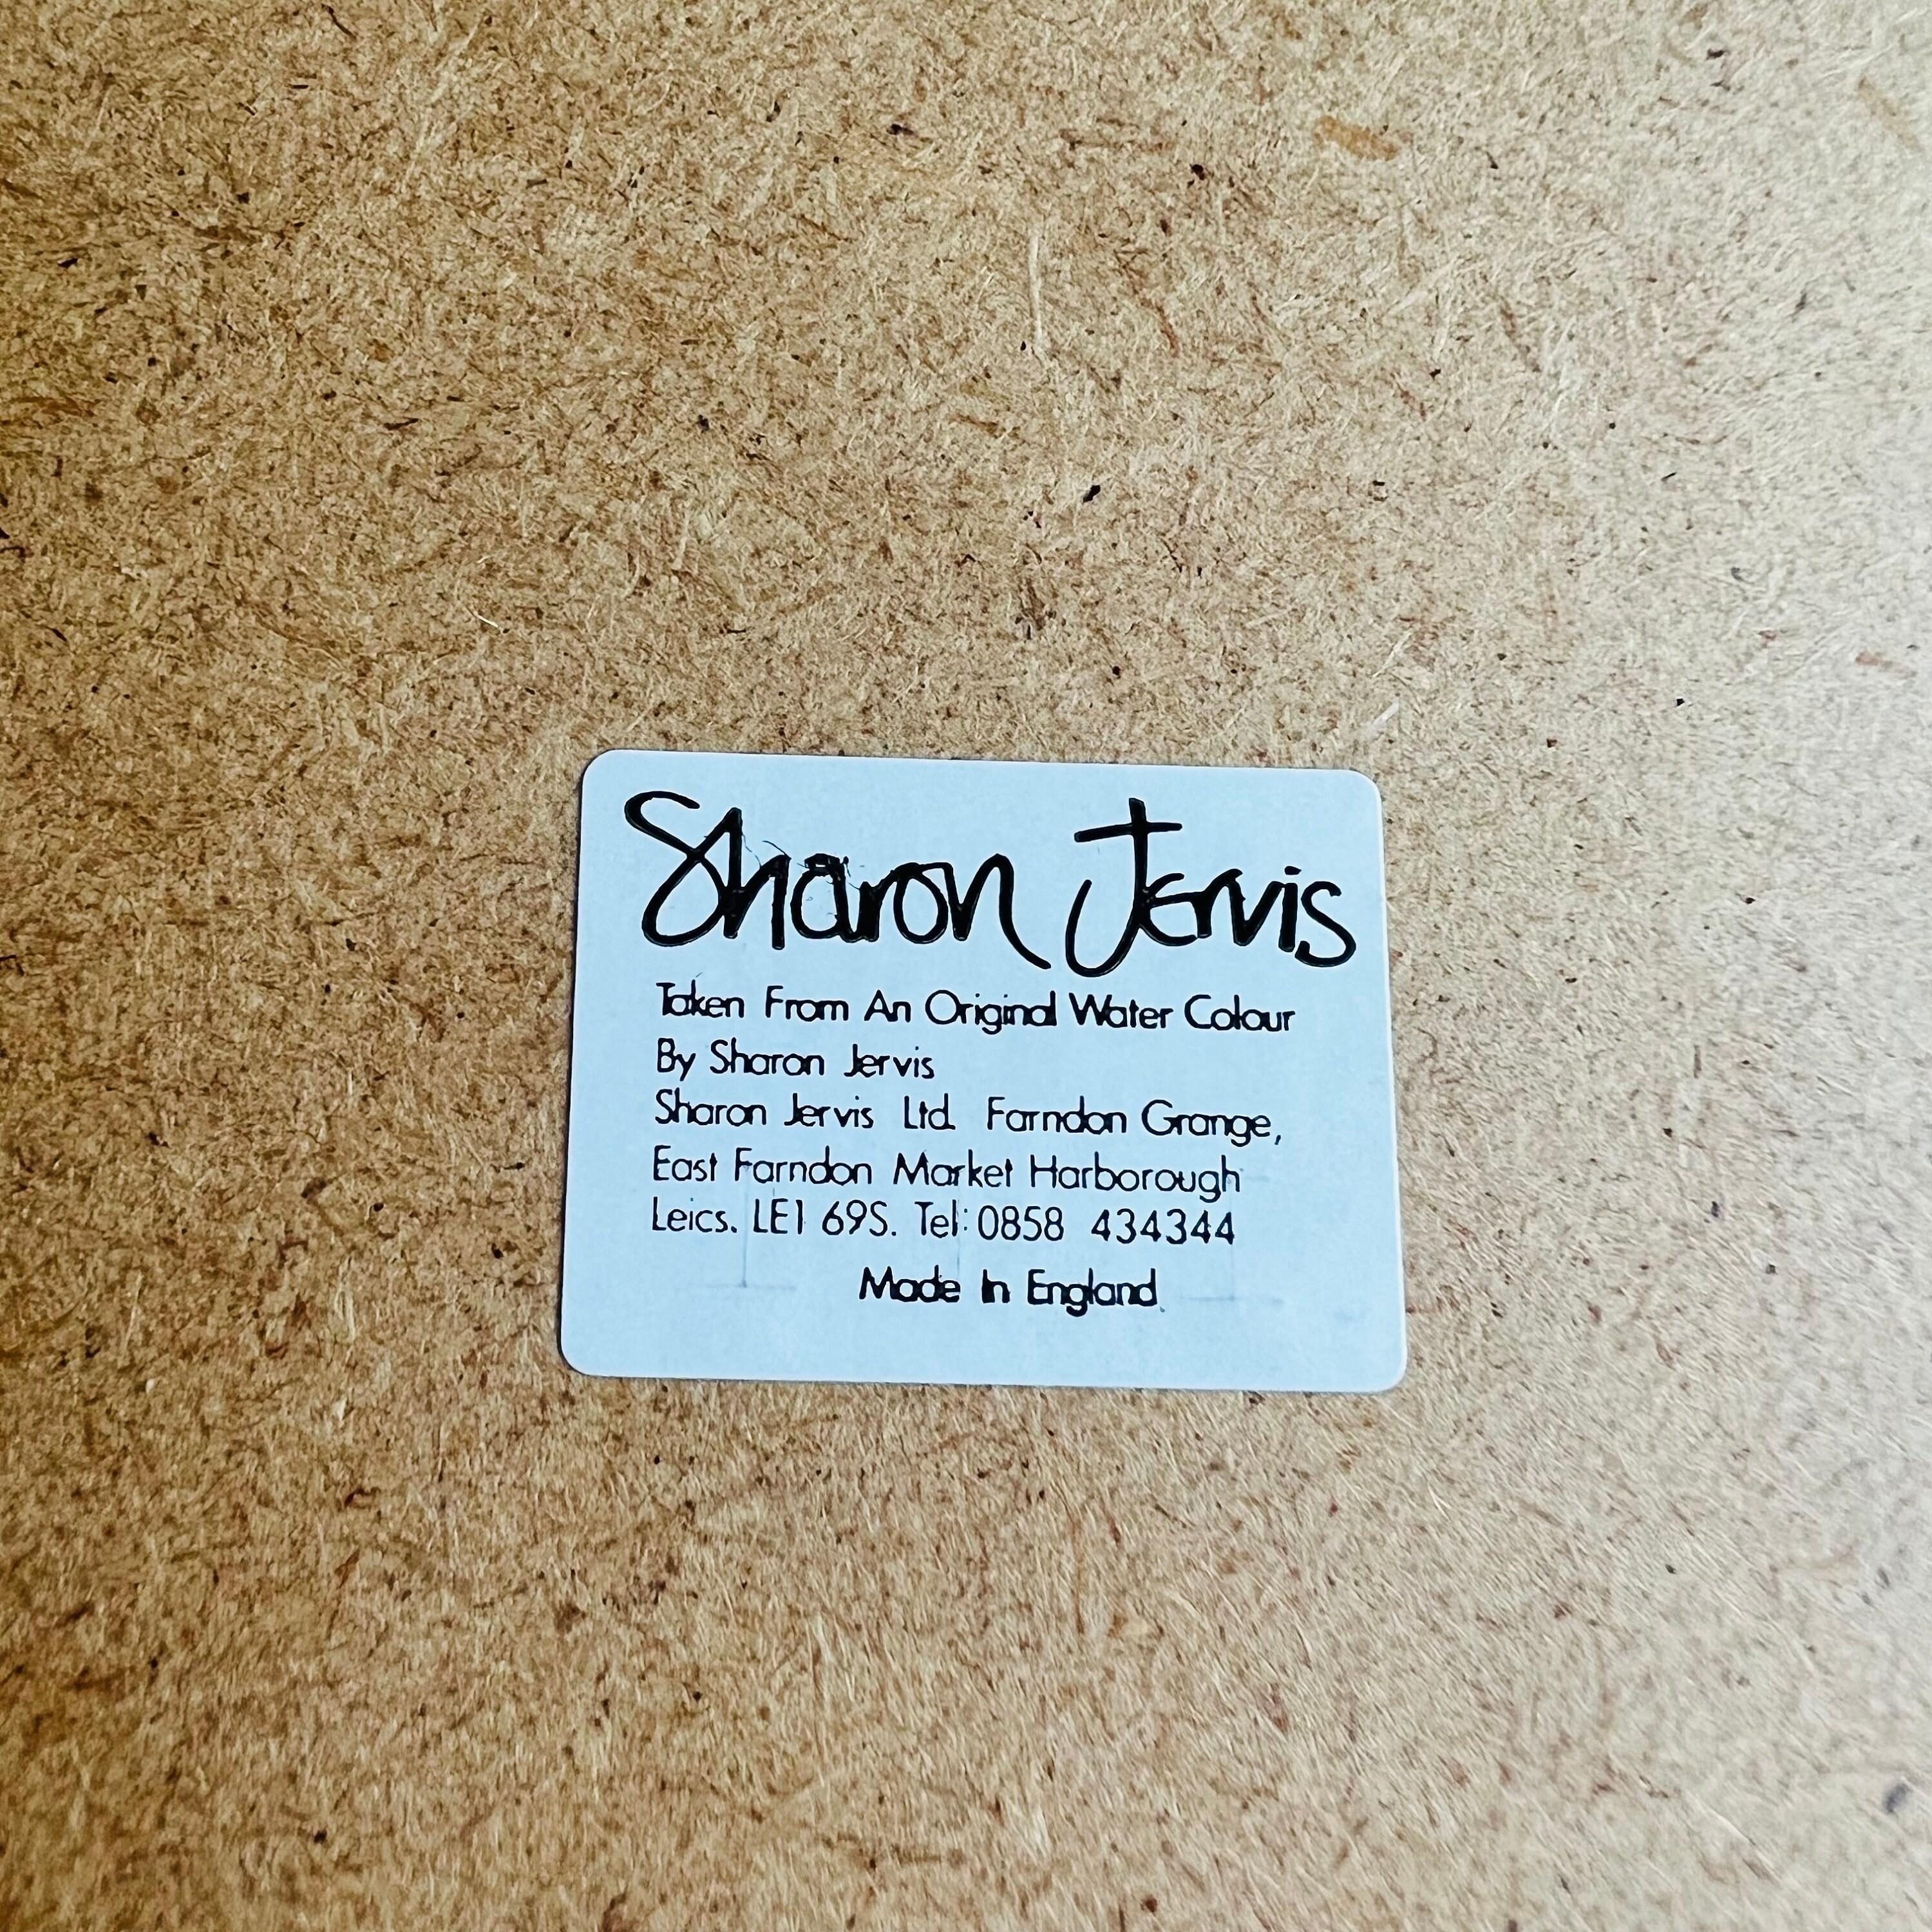 Sharon Jervis
Taken From An Original Water Colour
By Sharon Jervis
Sharon Jervis Ltd. Farndon Grange,
East Farndon Market Harborough
Leics. LE1 69S. Tel: 0858 434344
Made In England